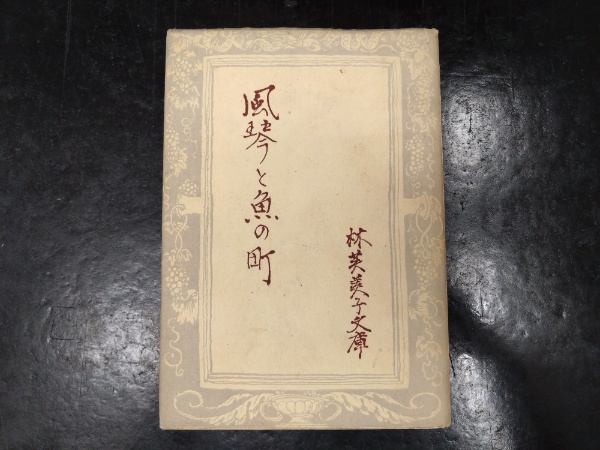 風琴と魚の町
林芙美子文庫